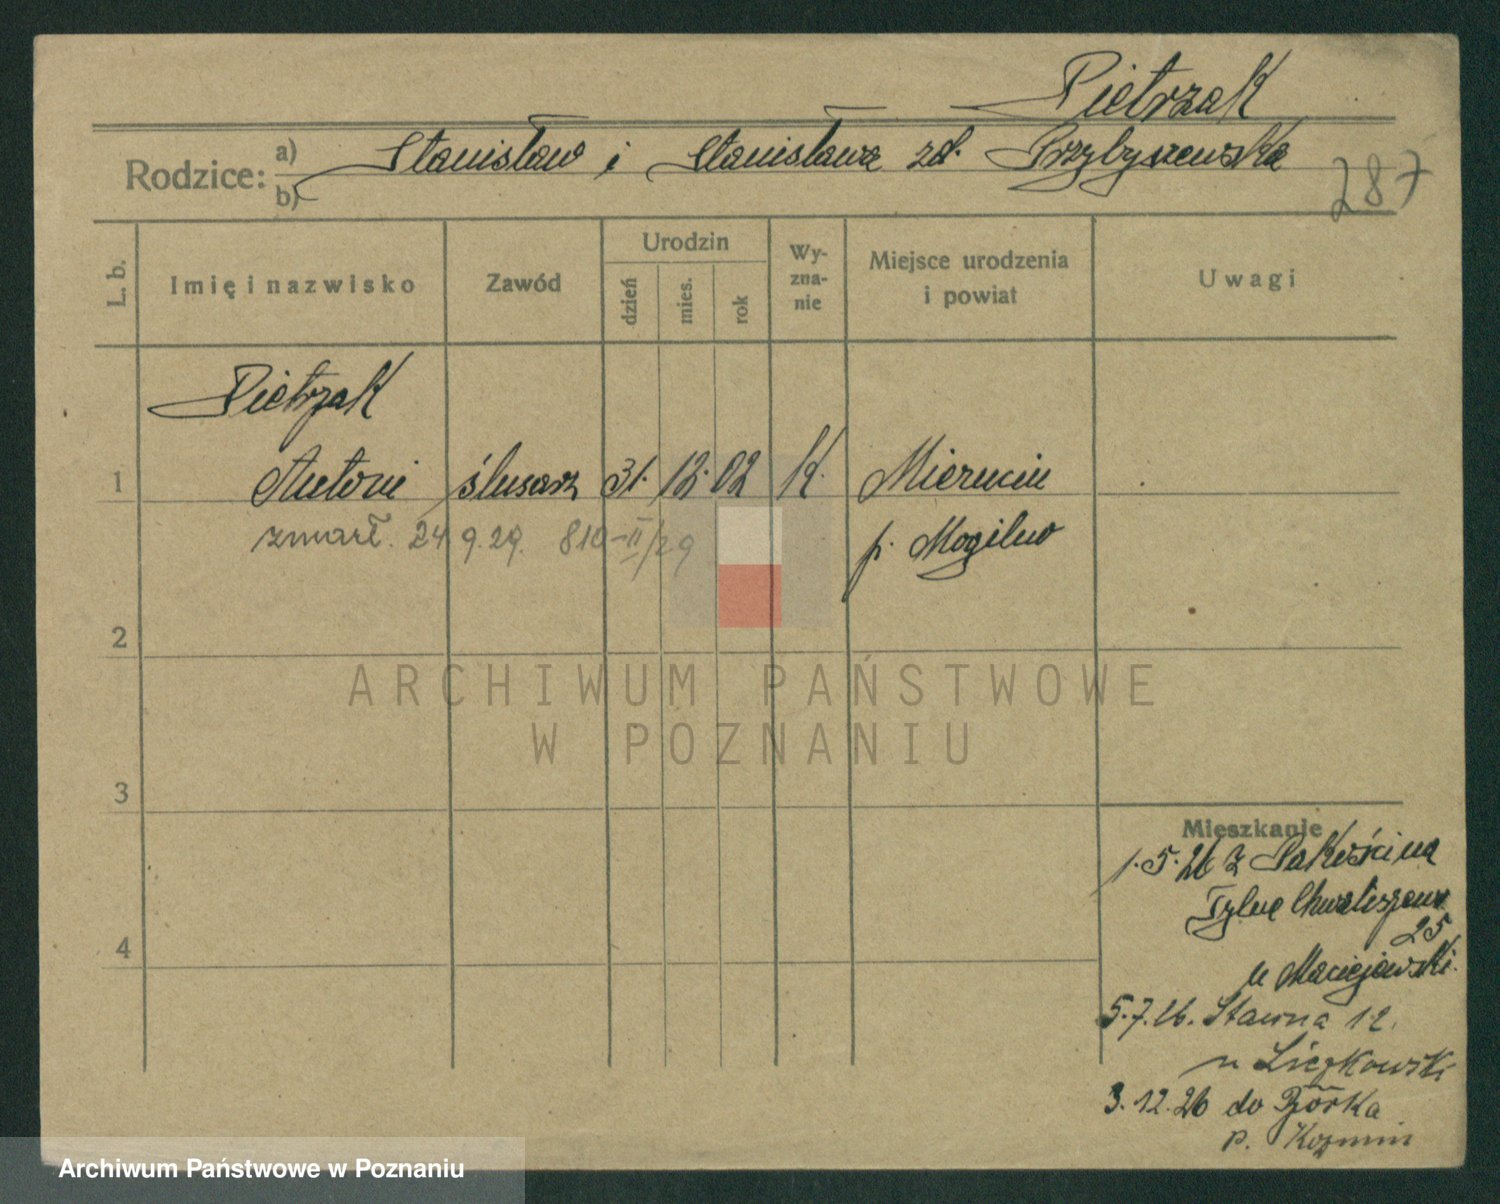 Pietrzak
Rodzice: a) Stanisław i Stanisława zd. Przybyszewska
b)
287
L. b.
Imię i nazwisko
Zawód
Urodzin
dzień
mies.
rok
Wy-
zna-
nie
Miejsce urodzenia
i powiat
Uwagi
Pietrzak
1 Antoni ślusarz 31. 12. 02 K. Mierucin
zmarł. 24 9. 29. 810-II/29 p. Mogilno
2
ARCHIWUM PAŃSTWOWE
W POZNANIU
3
Mieszkanie
1.5.26 z Pakości na
Tylne Chwaliszewo
25
4
u Maciejewski.
5.7.26. Stawna 12.
u Liczkowski
3.12.26 do
p. Kozmin
Archiwum Państwowe w Poznaniu